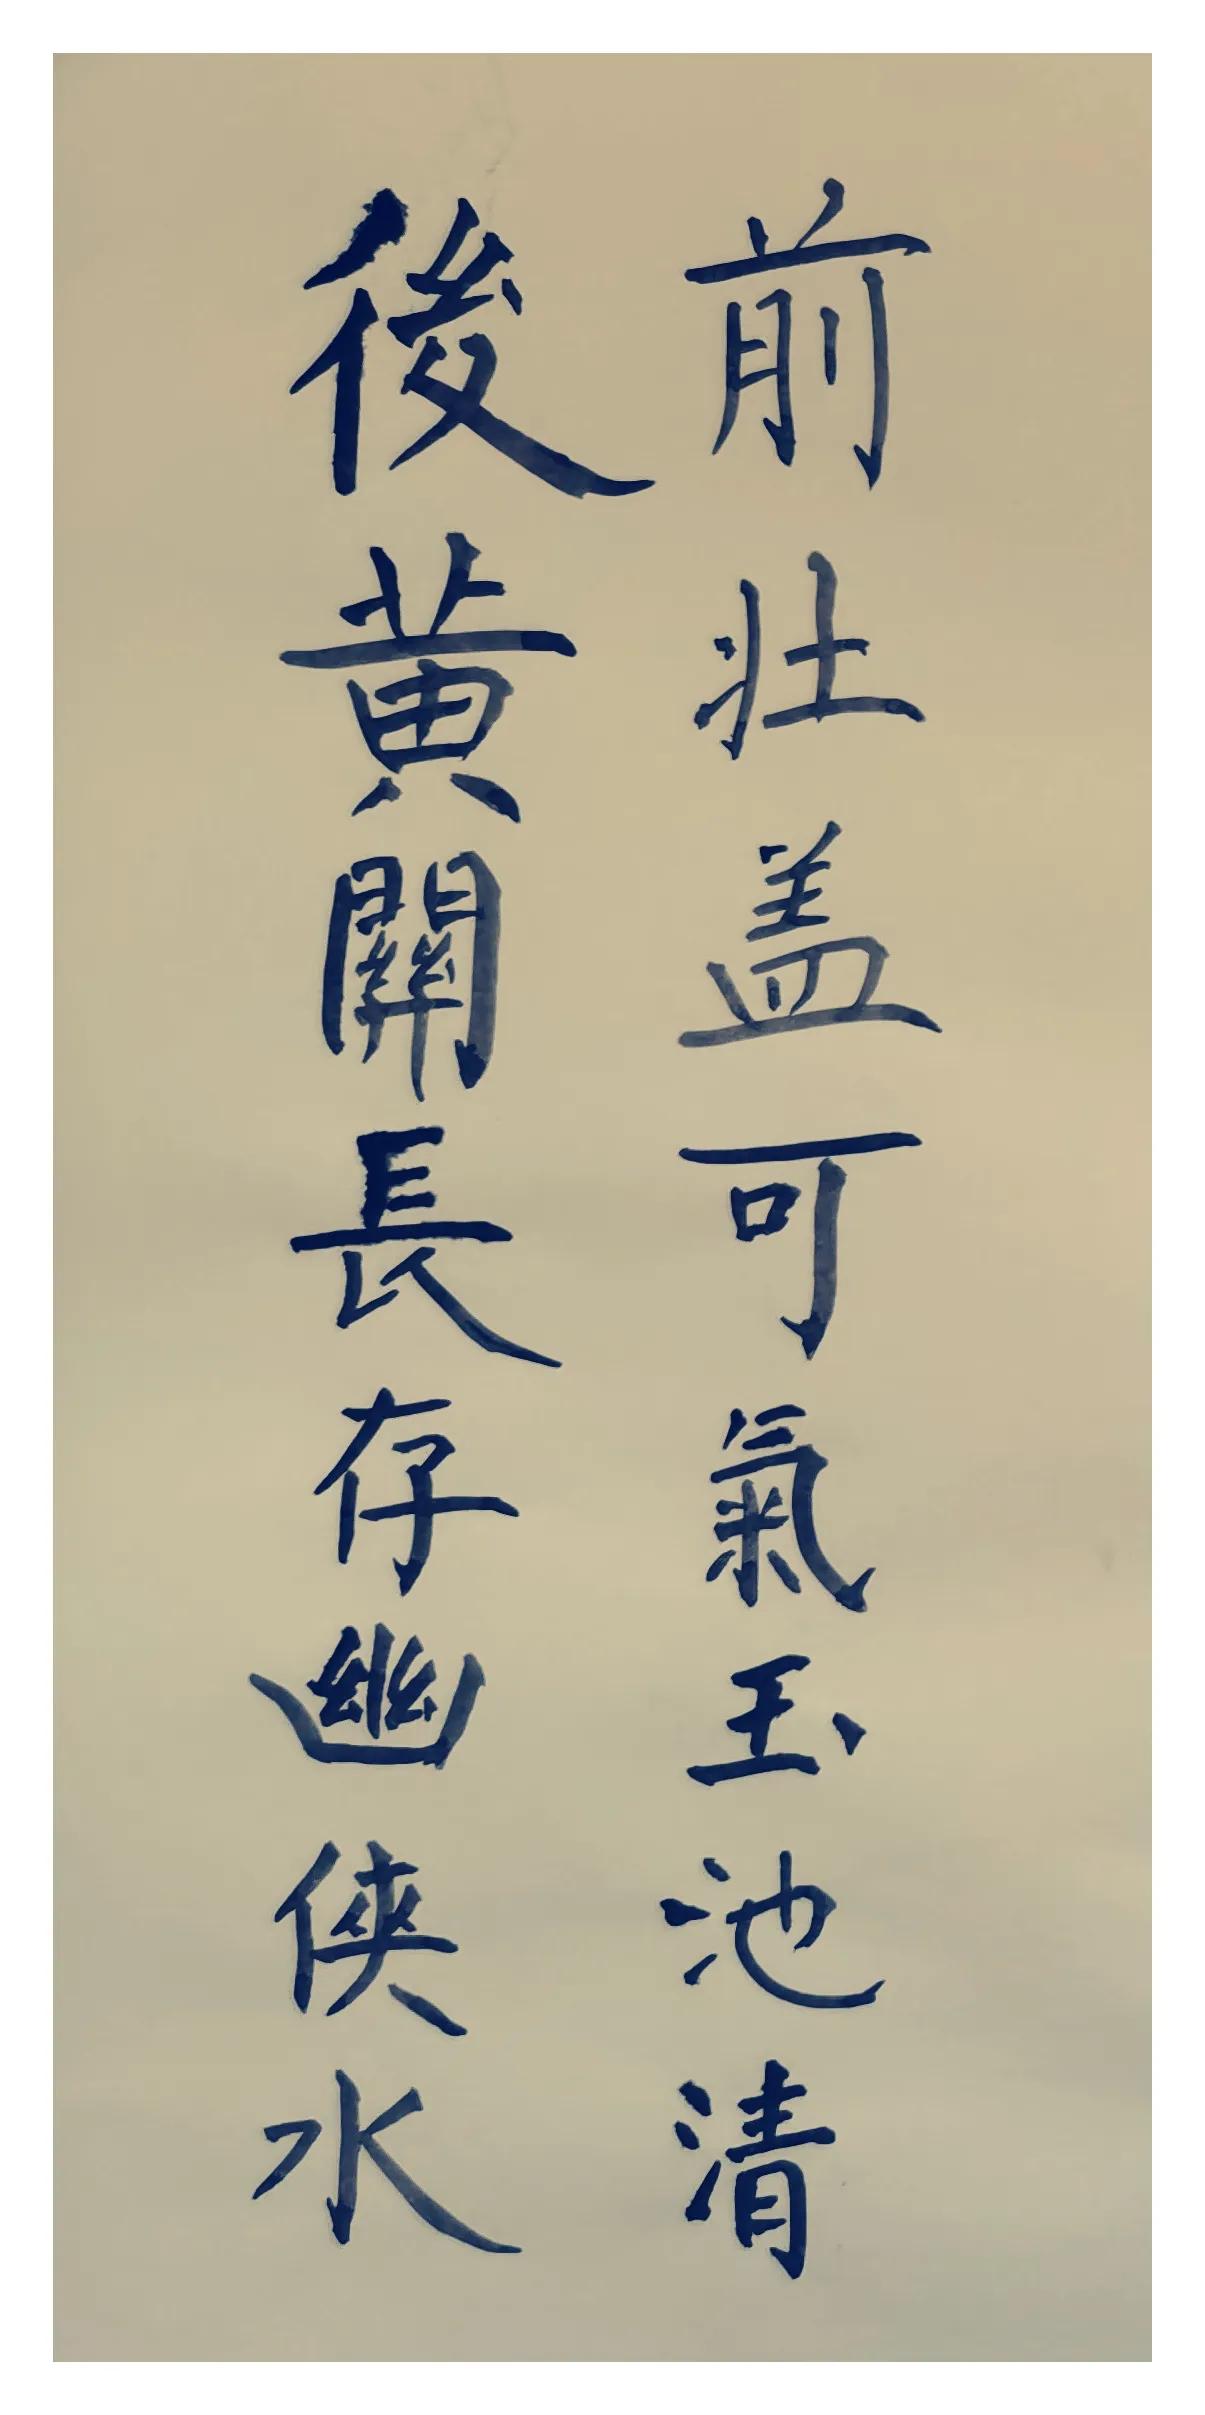 前壯盖可氣玉池清
後黄關長存幽俠水